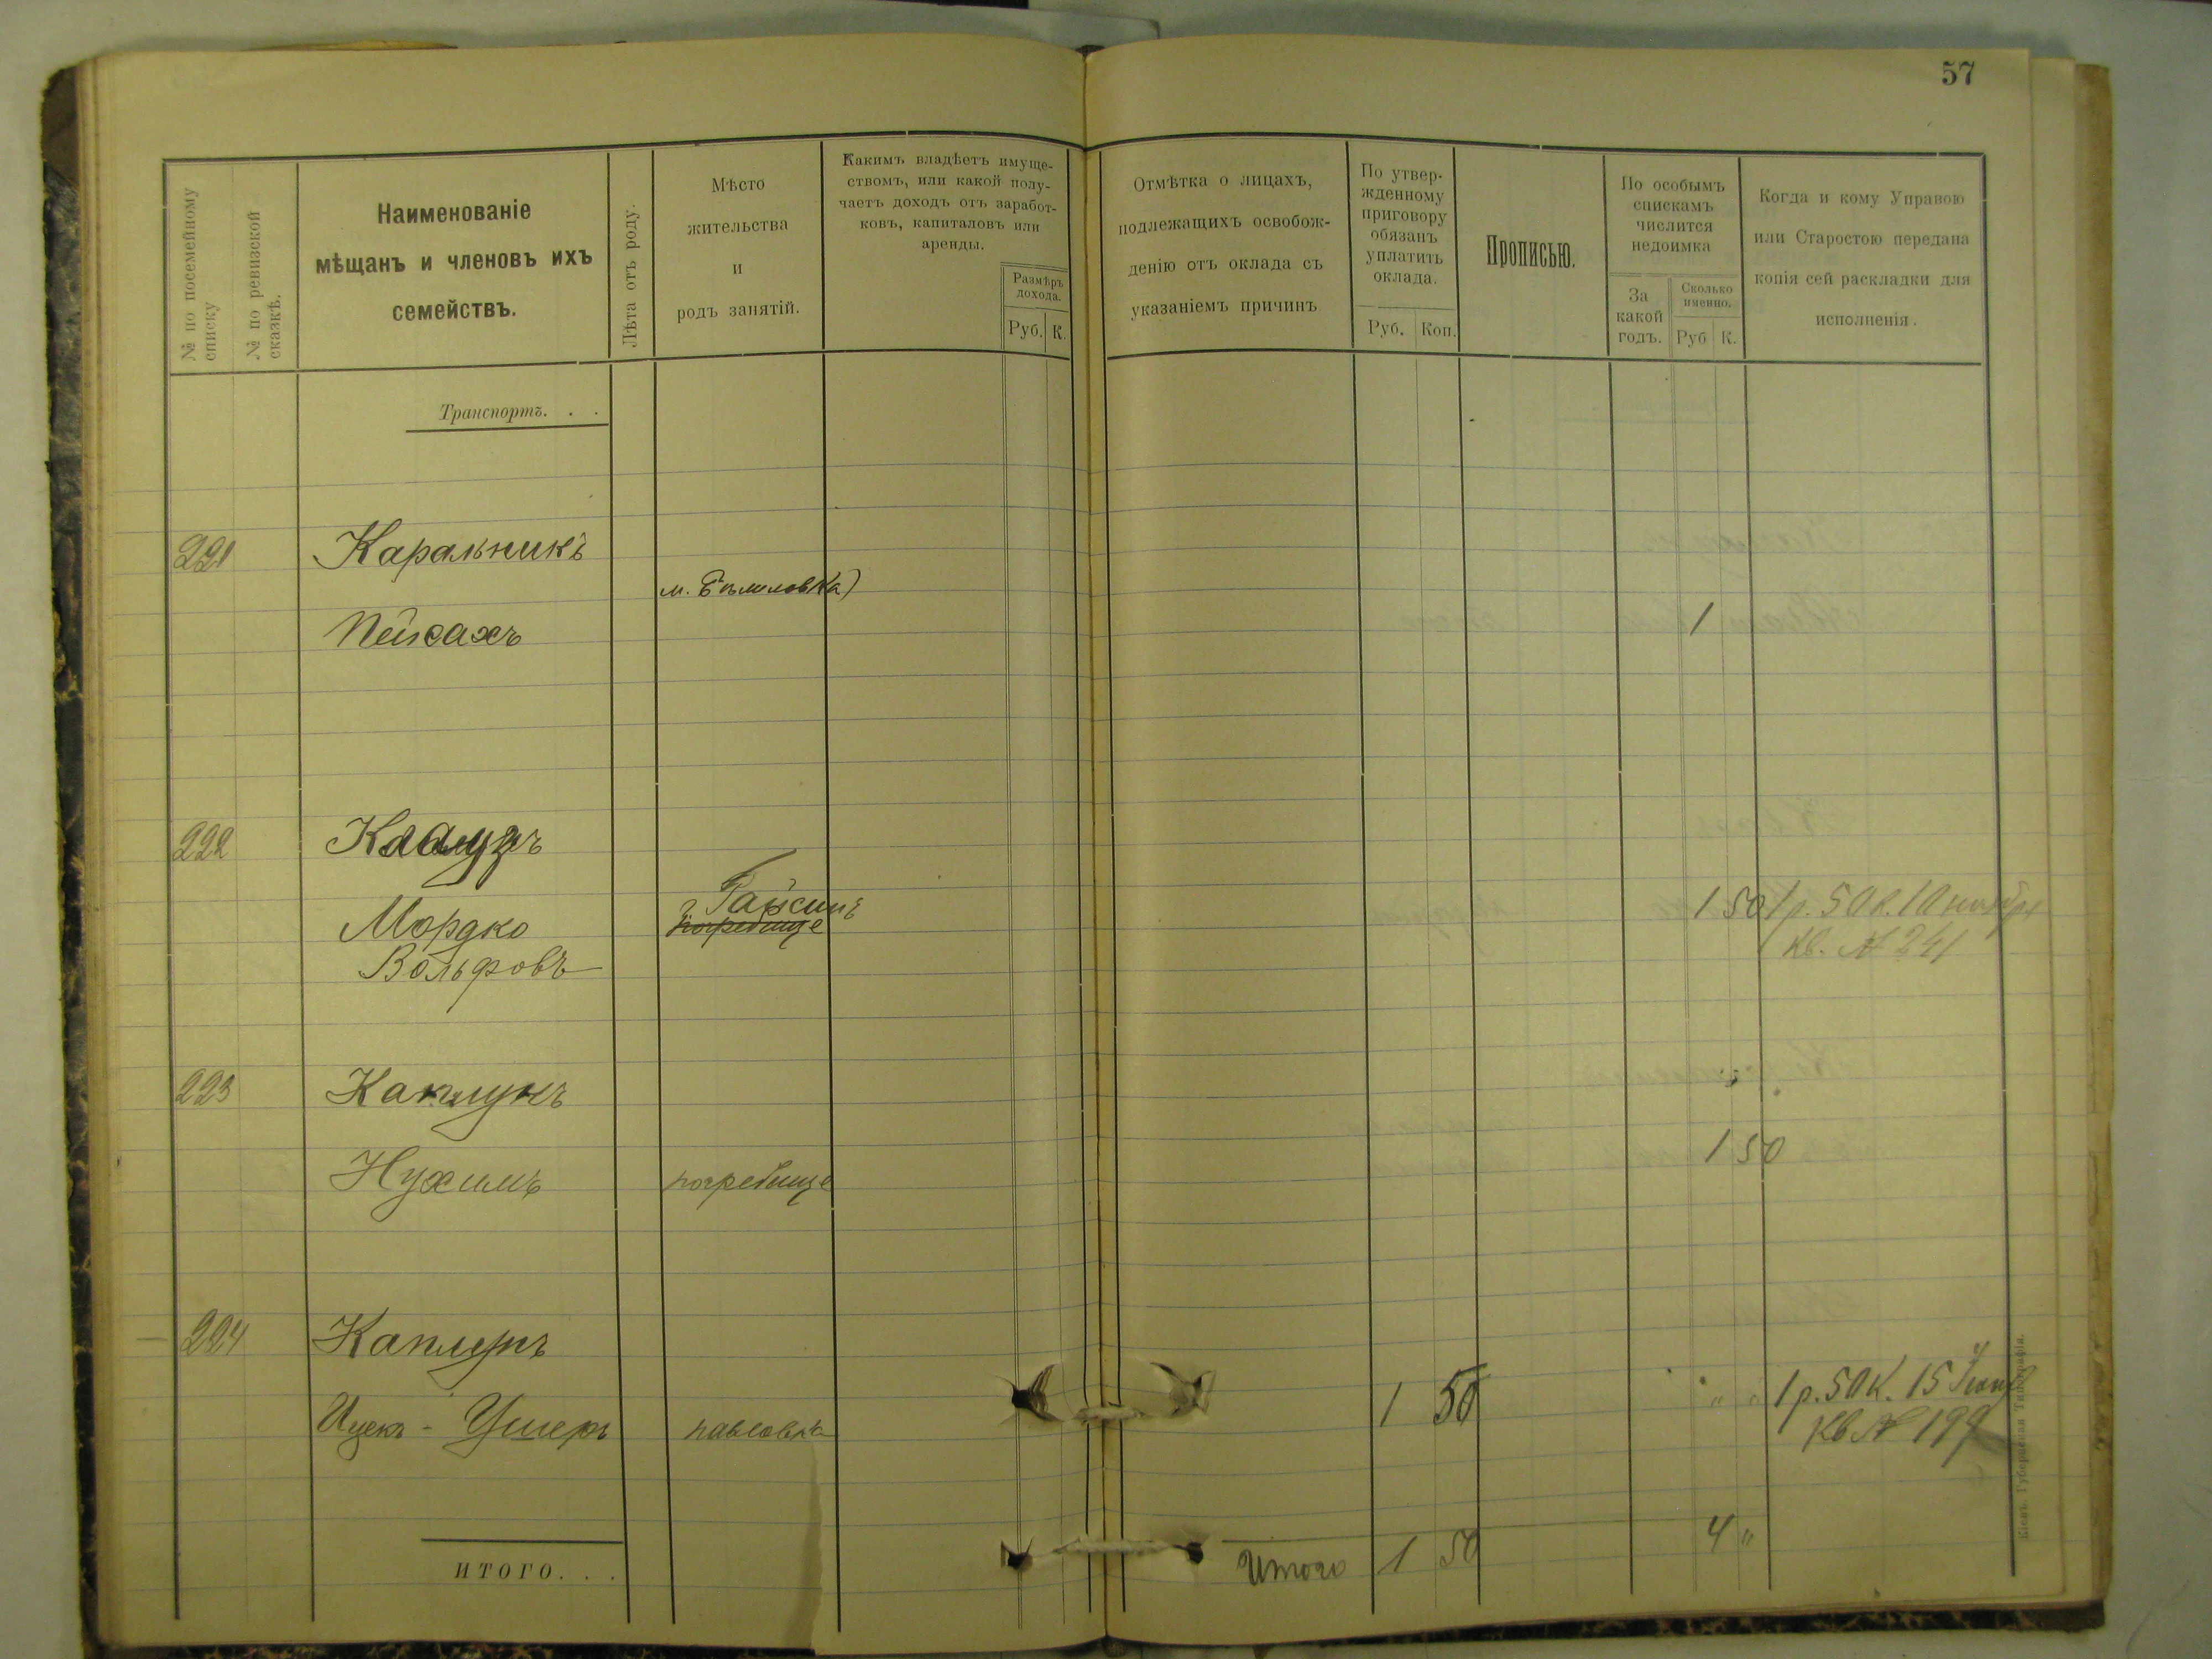 57
№ по посемейному
списку
№ по ревизской
сказкѣ.
Наименованіе
мѣщанъ и членовъ ихъ
семействъ.
Лѣта отъ роду.
Мѣсто
жительства
и
родъ занятій.
Какимъ владѣетъ имуще-
ствомъ, или какой полу-
чаетъ доходъ отъ заработ-
ковъ, капиталовъ или
аренды.
Размѣръ
дохода.
Руб. К.
Отмѣтка о лицахъ,
подлежащихъ освобож-
денію отъ оклада съ
указаніемъ причинъ
По утвер-
жденному
приговору
обязанъ
уплатить
оклада.
Руб. Коп.
Прописью.
По особымъ
спискамъ
числится
недоимка
За
какой
годъ.
Сколько
именно.
Руб К.
Когда и кому Управою
или Старостою передана
копія сей раскладки для
исполненія.
Транспортъ. . .
221 Каральникъ
м.
Пейсахъ 1
222
Гайсинъ
Мордко погребище 1 50 1 р. 50 к. 10 ноября
Вольфовъ кв. № 241
223 Каплунъ
Нухимъ погребище 1 50
224 Каплунъ
Ицекъ - Ушеръ павловка 1 50 " " 1 р. 50 к. 15
кв № 199
ИТОГО. . . Итого 1 50 4 "
Кіевъ. Губернская Типографія.